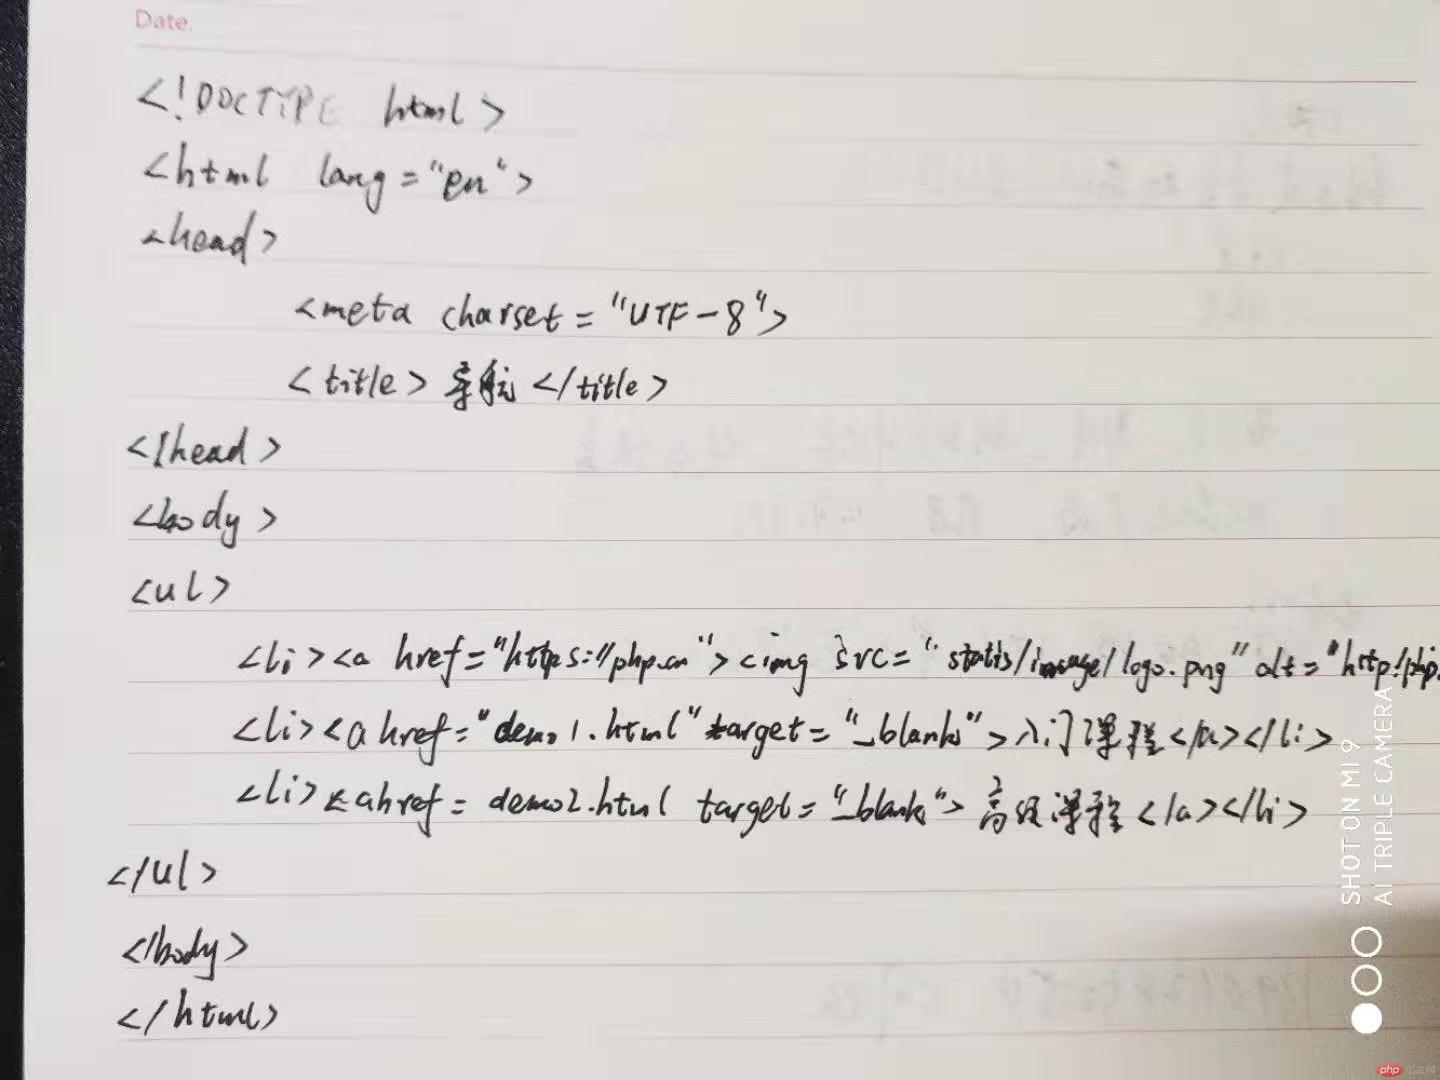 Date.
<!DOCTYPE html>
<html lang="en">
<head>
<meta charset="UTF-8">
<title>导航</title>
</head>
<body>
<ul>
<li><a href="https://php.cn"><img src="statis/image/logo.png" alt="http:/php.
<li><a href="demo1.html" target="_blank">入门课程</a></li>
<li><a href=demo2.html target="_blank">高级课程</a></li>
</ul>
</body>
</html>
SHOT ON MI 9
AI TRIPLE CAMERA
php中文网